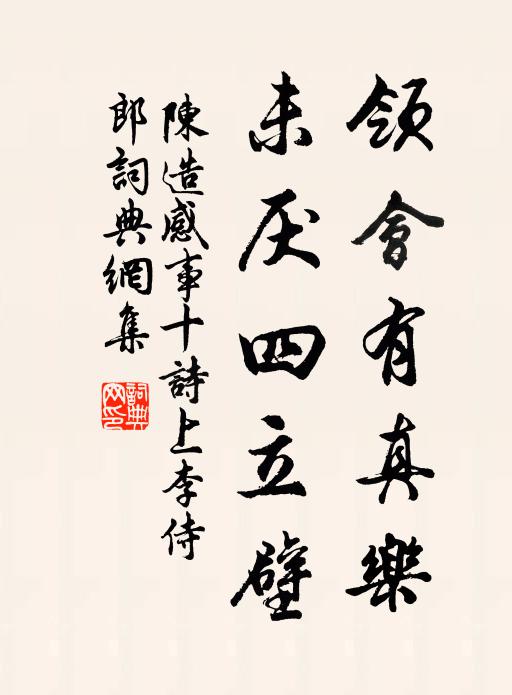 領會有真樂
未厌四立壁
陳造感事十詩上李侍
郎詞典網集
詞典
网印